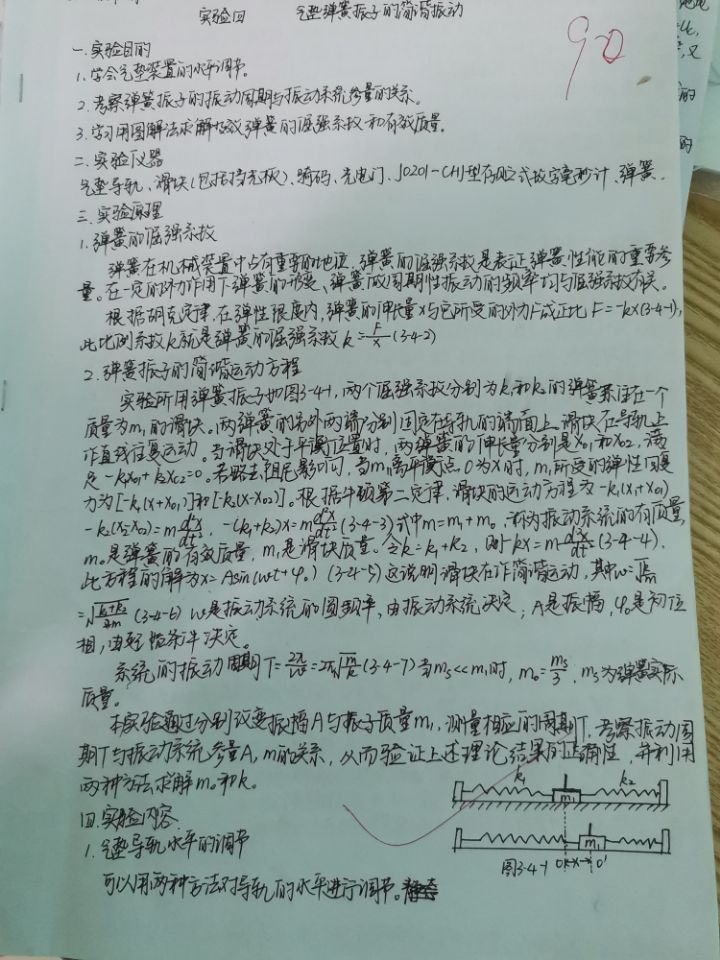 实验四 气垫弹簧振子的简谐振动
90
一.实验目的
1.学会气垫装置的水平调节。
2.考察弹簧振子的振动周期与振动系统参量的关系。
3.学习用图解法求解等效弹簧的倔强系数和有效质量。
二.实验仪器
气垫导轨、滑块(包括挡光板)、骑码、光电门、J0201-CHJ型存贮式数字毫秒计、弹簧.
三.实验原理
1.弹簧的倔强系数
弹簧在机械装置中占有重要的地位,弹簧的倔强系数是表证弹簧性能的重要参
量。在一定的外力作用下弹簧的形变、弹簧做周期性振动的频率均与倔强系数有关。
根据胡克定律,在弹性限度内,弹簧的伸长量x与它所受的外力F成正比F=-kx(3-4-1),
此比例系数k就是弹簧的倔强系数k=F/x(3-4-2)
2.弹簧振子的简谐运动方程
实验所用弹簧振子如图3-4-1,两个倔强系数分别为k₁和k₂的弹簧系住在一个
质量为m₁的滑块。两弹簧的另外两端分别固定在导轨的端面上。滑块在导轨上
作直线往复运动。当滑块处于平衡位置时,两弹簧的伸长量分别是x₀₁和x₀₂,满
足-k₁x₀₁+k₂x₀₂=0。若略去阻尼影响,当m₁离平衡点O为x时,m₁所受的弹性回复
力为[-k₁(x+x₀₁)]和[-k₂(x-x₀₂)]。根据牛顿第二定律,滑块的运动方程为-k₁(x₁+x₀₁)
-k₂(x₂-x₀₂)=m d²x/dt²,-(k₁+k₂)x=m d²x/dt²(3-4-3)式中m=m₁+m₀,称为振动系统的有质量,
m₀是弹簧的有效质量,m₁是滑块质量。令k=k₁+k₂,则-kx=m d²x/dt²(3-4-4).
此方程的解为x=Asin(ωt+φ₀)(3-4-5)这说明滑块在作简谐运动,其中ω=
(3-4-6)ω是振动系统的圆频率,由振动系统决定;A是振幅,φ₀是初位
相,由起始条件决定。
系统的振动周期T=2π/ω=2π√(m/k)(3-4-7)当ms<<m₁时,m₀=ms/3,ms为弹簧实际
质量。
本实验通过分别改变振幅A与振子质量m₁,测量相应的周期T,考察振动周
期T与振动系统参量A,m的关系,从而验证上述理论结果的正确性,并利用
两种方法求解m₀和k。
四.实验内容
1.气垫导轨水平的调节
可以用两种方法对导轨的水平进行调节。
k₁ m₁ k₂
m₁
图3-4-1 O x O'